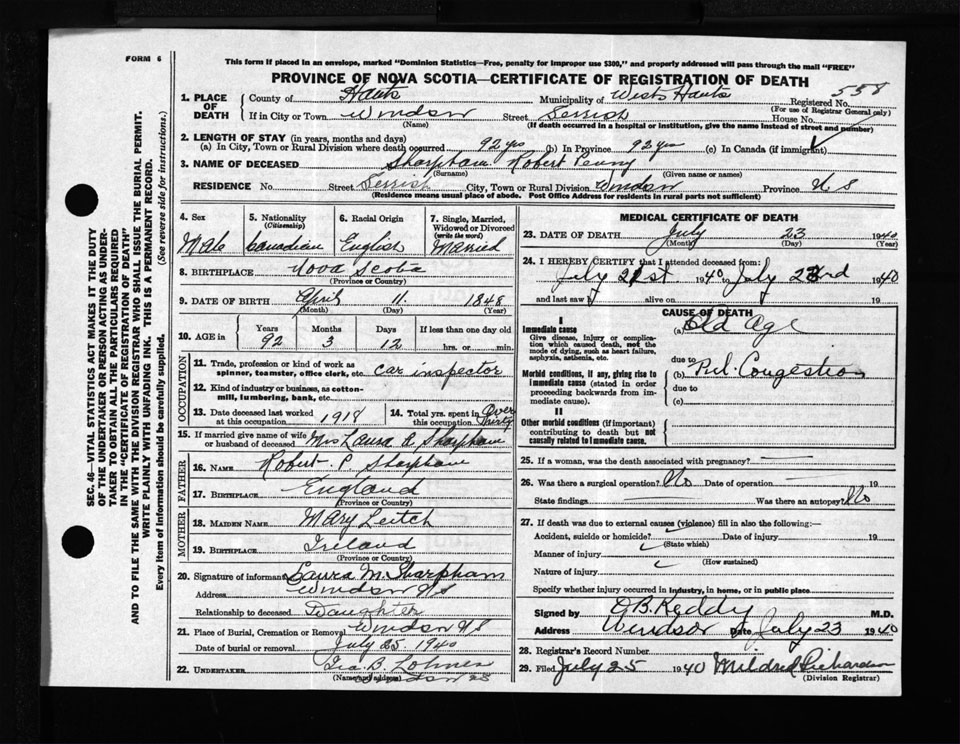 FORM 6
This form if placed in an envelope, marked "Dominion Statistics—Free, penalty for improper use $300," and properly addressed will pass through the mail "FREE"
PROVINCE OF NOVA SCOTIA—CERTIFICATE OF REGISTRATION OF DEATH
SEC. 46—VITAL STATISTICS ACT MAKES IT THE DUTY
OF THE UNDERTAKER OR PERSON ACTING AS UNDER-
TAKER TO OBTAIN ALL THE PARTICULARS REQUIRED
IN THE "CERTIFICATE OF REGISTRATION OF DEATH"
AND TO FILE THE SAME WITH THE DIVISION REGISTRAR WHO SHALL ISSUE THE BURIAL PERMIT.
WRITE PLAINLY WITH UNFADING INK. THIS IS A PERMANENT RECORD.
Every item of Information should be carefully supplied. (See reverse side for instructions.)
1. PLACE OF DEATH
County of Hants Municipality of West Hants Registered No. 558
(For use of Registrar General only)
If in City or Town Windsor Street House No.
(Name) (If death occurred in a hospital or institution, give the name instead of street and number)
2. LENGTH OF STAY (in years, months and days)
(a) In City, Town or Rural Division where death occurred 92 yrs (b) In Province 92 yrs (c) In Canada (if immigrant)
3. NAME OF DECEASED Sharpham Robert Penny
(Surname) (Given name or names)
RESIDENCE No. Street City, Town or Rural Division Windsor Province N S
(Residence means usual place of abode. Post Office Address for residents in rural parts not sufficient)
4. Sex Male
5. Nationality (Citizenship) Canadian
6. Racial Origin English
7. Single, Married, Widowed or Divorced (write the word) Married
8. BIRTHPLACE Nova Scotia
(Province or Country)
9. DATE OF BIRTH April 11. 1848
(Month) (Day) (Year)
10. AGE in Years Months Days If less than one day old
92 3 12 hrs. or min.
OCCUPATION
11. Trade, profession or kind of work as spinner, teamster, office clerk, etc. Car inspector
12. Kind of industry or business, as cotton-mill, lumbering, bank, etc.
13. Date deceased last worked at this occupation 1918
14. Total yrs. spent in this occupation Over Thirty
15. If married give name of wife or husband of deceased Mrs Laura A Sharpham
FATHER
16. NAME Robert P Sharpham
17. BIRTHPLACE England
(Province or Country)
MOTHER
18. MAIDEN NAME Mary Leitch
19. BIRTHPLACE Ireland
(Province or Country)
20. Signature of informant Laura M. Sharpham
Address Windsor N S
Relationship to deceased Daughter
21. Place of Burial, Cremation or Removal Windsor N S
Date of burial or removal July 25 1940
22. UNDERTAKER Ira B. Lohnes
(Name and address) Windsor NS
MEDICAL CERTIFICATE OF DEATH
23. DATE OF DEATH July 23 1940
(Month) (Day) (Year)
24. I HEREBY CERTIFY that I attended deceased from:
July 21st 1940 to July 23rd 1940
and last saw h alive on 19
CAUSE OF DEATH
I
Immediate cause
Give disease, injury or complication which caused death, not the mode of dying, such as heart failure, asphyxia, asthenia, etc.
(a) Old Age
due to
Morbid conditions, if any, giving rise to immediate cause (stated in order proceeding backwards from immediate cause).
(b) Pul. Congestion
due to
(c)
II
Other morbid conditions (if important) contributing to death but not causally related to immediate cause.
25. If a woman, was the death associated with pregnancy?
26. Was there a surgical operation? No Date of operation 19
State findings Was there an autopsy? No
27. If death was due to external causes (violence) fill in also the following:—
Accident, suicide or homicide? Date of injury 19
(State which)
Manner of injury
(How sustained)
Nature of injury
Specify whether injury occurred in industry, in home, or in public place
Signed by O B. Keddy M.D.
Address Windsor Date July 23 1940
28. Registrar's Record Number
29. Filed July 25 1940 Mildred Richardson
(Division Registrar)